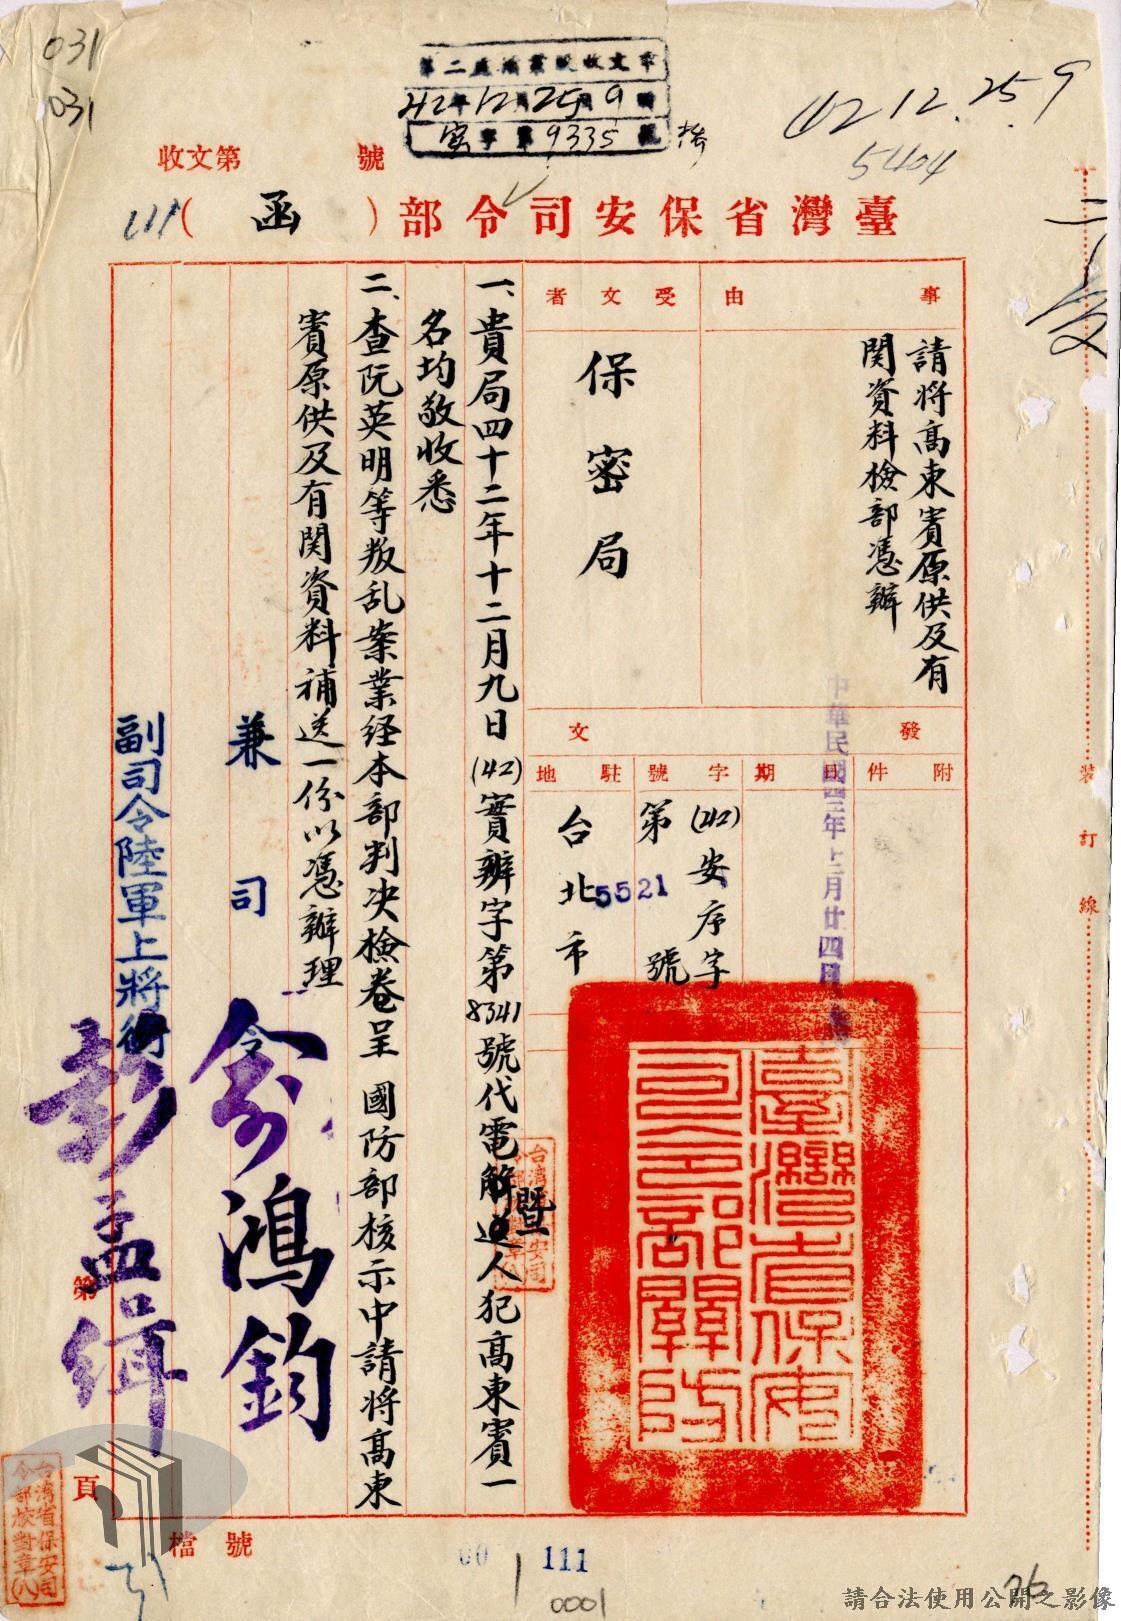 031
031
第二處偵業股收文章
42年12月25日9時
實字第9335號
42 12.25.9
5404
收文第 號
臺灣省保安司令部（函）
111
事由
請將高東賓原供及有
関資料檢部憑辦
受文者
保密局
發文
附件
日期
中華民國四二年十二月廿四日
字號
(42)安序字
第5521號
駐地
台北市
一、貴局四十二年十二月九日(42)實辦字第8341號代電解送人犯高東賓一
暨
名均敬收悉
二、查阮英明等叛乱案業経本部判决檢卷呈 國防部核示中請將高東
賓原供及有関資料補送一份以憑辦理
兼司令 俞鴻鈞
副司令陸軍上將銜 彭孟緝
臺灣省保安司令部關防
台灣省保安司令部校對章(八)
裝訂線
第 頁
檔號
00 111
0001
26
請合法使用公開之影像